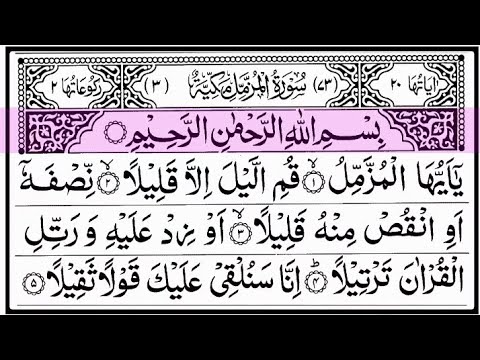 اٰیَاتُہَا ٢٠ (٧٣) سُوْرَةُ الْمُزَّمِّلِ مَكِّیَّةٌ (٣) رُكُوْعَاتُہَا ٢
بِسْمِ اللّٰهِ الرَّحْمٰنِ الرَّحِیْمِ
یٰۤاَیُّهَا الْمُزَّمِّلُ ۝١ قُمِ الَّیْلَ اِلَّا قَلِیْلًا ۝٢ نِّصْفَهٗۤ
اَوِ انْقُصْ مِنْهُ قَلِیْلًا ۝٣ اَوْ زِدْ عَلَیْهِ وَ رَتِّلِ
الْقُرْاٰنَ تَرْتِیْلًا ۝٤ اِنَّا سَنُلْقِیْ عَلَیْكَ قَوْلًا ثَقِیْلًا ۝٥